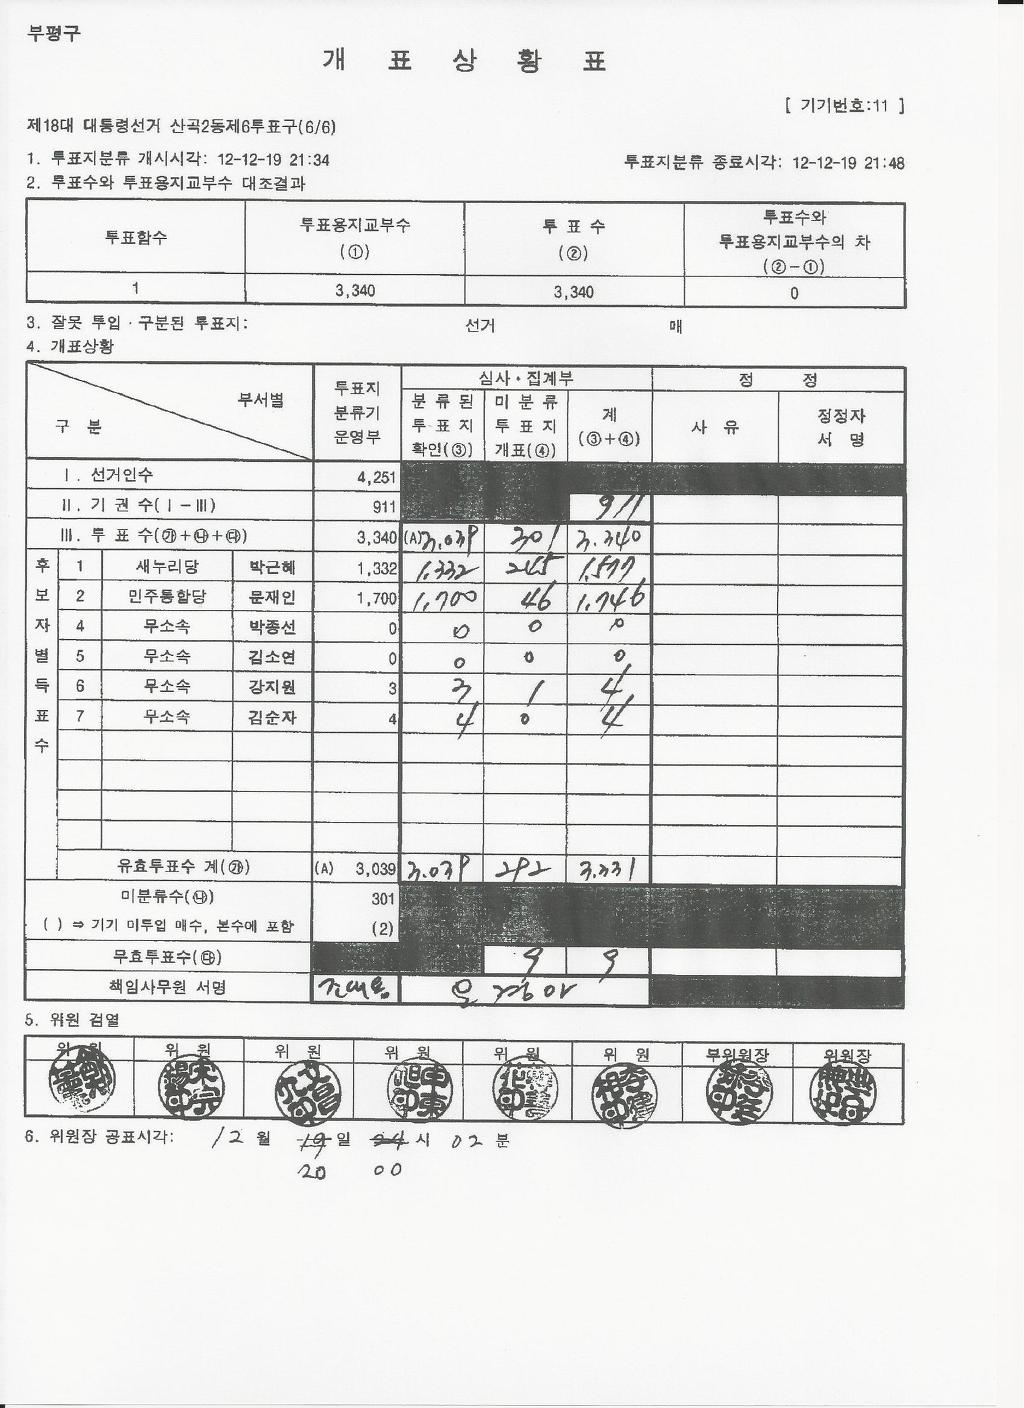 부평구
개 표 상 황 표
[ 기기번호:11 ]
제18대 대통령선거 산곡2동제6투표구(6/6)
1. 투표지분류 개시시각: 12-12-19 21:34 투표지분류 종료시각: 12-12-19 21:48
2. 투표수와 투표용지교부수 대조결과
투표함수 투표용지교부수 (①) 투 표 수 (②) 투표수와 투표용지교부수의 차 (②-①)
1 3,340 3,340 0
3. 잘못 투입·구분된 투표지: 선거 매
4. 개표상황
구 분 부서별 투표지 분류기 운영부 심사·집계부 정 정
분 류 된 투 표 지 확인(③) 미 분 류 투 표 지 개표(④) 계 (③+④) 사 유 정정자 서 명
Ⅰ. 선거인수 4,251
Ⅱ. 기 권 수(Ⅰ-Ⅲ) 911 911
Ⅲ. 투 표 수(㉮+㉯+㉰) 3,340 (A) 3.039 301 3.340
후보자별득표수
1 새누리당 박근혜 1,332 1.332 245 1.577
2 민주통합당 문재인 1,700 1,700 46 1,746
4 무소속 박종선 0 0 0 0
5 무소속 김소연 0 0 0 0
6 무소속 강지원 3 3 1 4
7 무소속 김순자 4 4 0 4
유효투표수 계(㉮) (A) 3,039 3.039 292 3.331
미분류수(㉯) 301
( ) ⇒ 기기 미투입 매수, 본수에 포함 (2)
무효투표수(㉰) 9 9
책임사무원 서명
5. 위원 검열
위 원 위 원 위 원 위 원 위 원 위 원 부위원장 위원장
6. 위원장 공표시각: 12 월 19 일 24 시 02 분
20 00